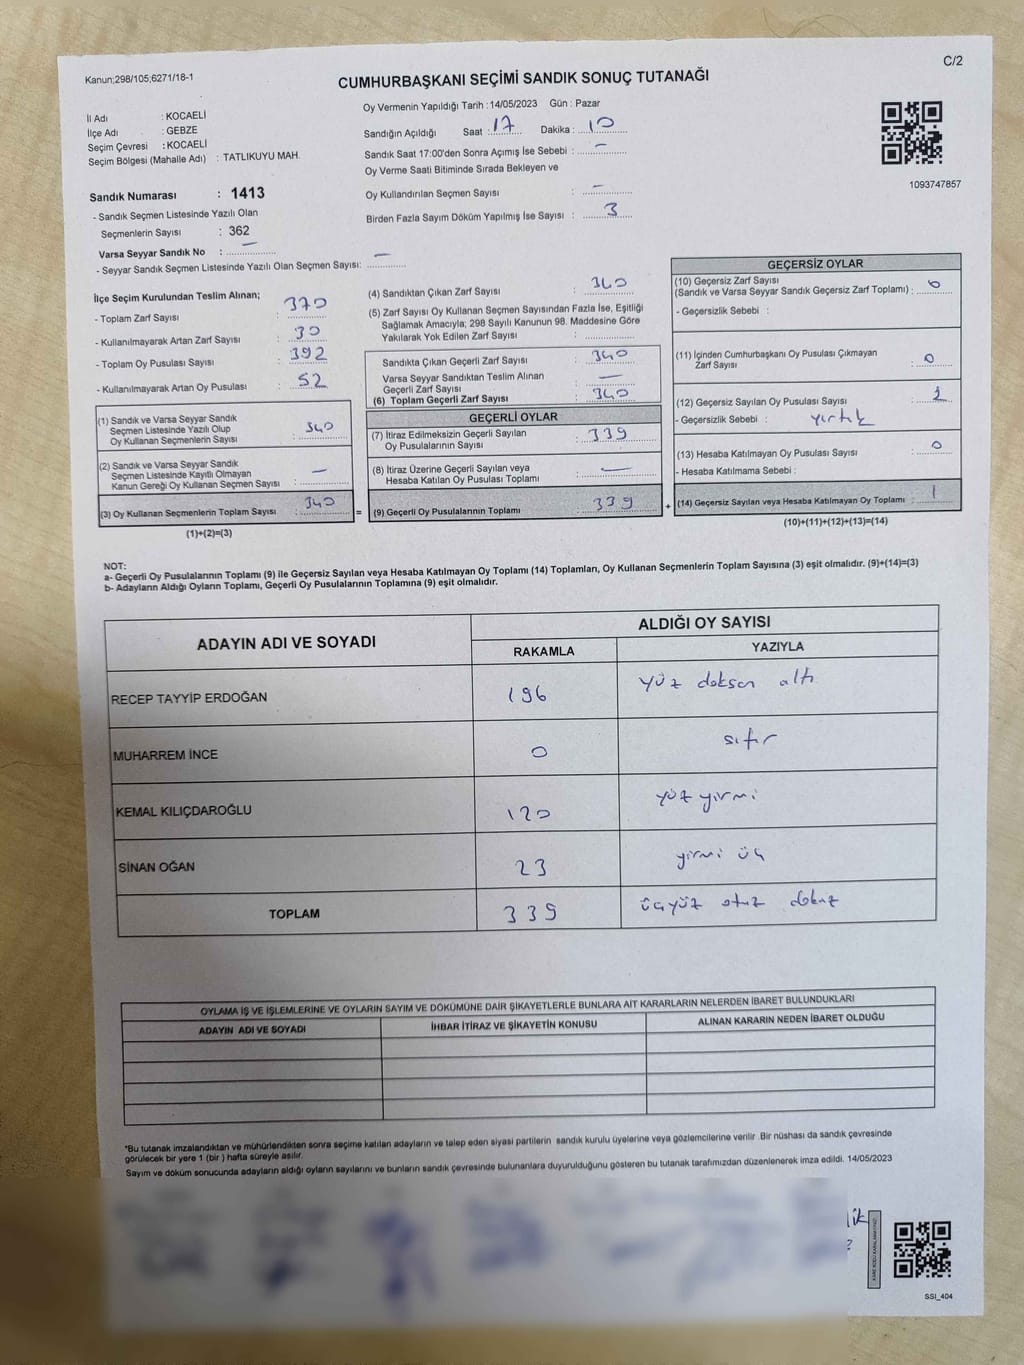 Kanun;298/105;6271/18-1
C/2
CUMHURBAŞKANI SEÇİMİ SANDIK SONUÇ TUTANAĞI
İl Adı : KOCAELİ
İlçe Adı : GEBZE
Seçim Çevresi : KOCAELİ
Seçim Bölgesi (Mahalle Adı) : TATLIKUYU MAH.
Oy Vermenin Yapıldığı Tarih : 14/05/2023 Gün : Pazar
Sandığın Açıldığı Saat : 17 Dakika : 10
Sandık Saat 17:00'den Sonra Açımış İse Sebebi : —
Oy Verme Saati Bitiminde Sırada Bekleyen ve
Oy Kullandırılan Seçmen Sayısı : —
Birden Fazla Sayım Döküm Yapılmış İse Sayısı : 3
1093747857
Sandık Numarası : 1413
- Sandık Seçmen Listesinde Yazılı Olan
Seçmenlerin Sayısı : 362
Varsa Seyyar Sandık No : —
- Seyyar Sandık Seçmen Listesinde Yazılı Olan Seçmen Sayısı: —
İlçe Seçim Kurulundan Teslim Alınan;
- Toplam Zarf Sayısı : 370
- Kullanılmayarak Artan Zarf Sayısı : 30
- Toplam Oy Pusulası Sayısı : 392
- Kullanılmayarak Artan Oy Pusulası : 52
(1) Sandık ve Varsa Seyyar Sandık
Seçmen Listesinde Yazılı Olup
Oy Kullanan Seçmenlerin Sayısı : 340
(2) Sandık ve Varsa Seyyar Sandık
Seçmen Listesinde Kayıtlı Olmayan
Kanun Gereği Oy Kullanan Seçmen Sayısı : —
(3) Oy Kullanan Seçmenlerin Toplam Sayısı : 340
(1)+(2)=(3)
(4) Sandıktan Çıkan Zarf Sayısı : 340
(5) Zarf Sayısı Oy Kullanan Seçmen Sayısından Fazla İse, Eşitliği
Sağlamak Amacıyla; 298 Sayılı Kanunun 98. Maddesine Göre
Yakılarak Yok Edilen Zarf Sayısı :
Sandıkta Çıkan Geçerli Zarf Sayısı : 340
Varsa Seyyar Sandıktan Teslim Alınan
Geçerli Zarf Sayısı : —
(6) Toplam Geçerli Zarf Sayısı : 340
GEÇERLİ OYLAR
(7) İtiraz Edilmeksizin Geçerli Sayılan
Oy Pusulalarının Sayısı : 339
(8) İtiraz Üzerine Geçerli Sayılan veya
Hesaba Katılan Oy Pusulası Toplamı : —
= (9) Geçerli Oy Pusulalarının Toplamı : 339 +
GEÇERSİZ OYLAR
(10) Geçersiz Zarf Sayısı
(Sandık ve Varsa Seyyar Sandık Geçersiz Zarf Toplamı) : 0
- Geçersizlik Sebebi :
(11) İçinden Cumhurbaşkanı Oy Pusulası Çıkmayan
Zarf Sayısı : 0
(12) Geçersiz Sayılan Oy Pusulası Sayısı : 1
- Geçersizlik Sebebi : yırtık
(13) Hesaba Katılmayan Oy Pusulası Sayısı : 0
- Hesaba Katılmama Sebebi :
(14) Geçersiz Sayılan veya Hesaba Katılmayan Oy Toplamı : 1
(10)+(11)+(12)+(13)=(14)
NOT:
a- Geçerli Oy Pusulalarının Toplamı (9) ile Geçersiz Sayılan veya Hesaba Katılmayan Oy Toplamı (14) Toplamları, Oy Kullanan Seçmenlerin Toplam Sayısına (3) eşit olmalıdır. (9)+(14)=(3)
b- Adayların Aldığı Oyların Toplamı, Geçerli Oy Pusulalarının Toplamına (9) eşit olmalıdır.
ADAYIN ADI VE SOYADI ALDIĞI OY SAYISI
RAKAMLA YAZIYLA
RECEP TAYYİP ERDOĞAN 196 yüz doksan altı
MUHARREM İNCE 0 sıfır
KEMAL KILIÇDAROĞLU 120 yüz yirmi
SİNAN OĞAN 23 yirmi üç
TOPLAM 339 üçyüz otuz dokuz
OYLAMA İŞ VE İŞLEMLERİNE VE OYLARIN SAYIM VE DÖKÜMÜNE DAİR ŞİKAYETLERLE BUNLARA AİT KARARLARIN NELERDEN İBARET BULUNDUKLARI
ADAYIN ADI VE SOYADI İHBAR İTİRAZ VE ŞİKAYETİN KONUSU ALINAN KARARIN NEDEN İBARET OLDUĞU
*Bu tutanak imzalandıktan ve mühürlendikten sonra seçime katılan adayların ve talep eden siyasi partilerin sandık kurulu üyelerine veya gözlemcilerine verilir. Bir nüshası da sandık çevresinde
görülecek bir yere 1 (bir) hafta süreyle asılır.
Sayım ve döküm sonucunda adayların aldığı oyların sayılarını ve bunların sandık çevresinde bulunanlara duyurulduğunu gösteren bu tutanak tarafımızdan düzenlenerek imza edildi. 14/05/2023
SSI_404